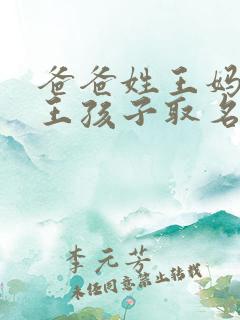 爸爸姓王妈
王孩子取名
李元芳
未经同意禁止转载